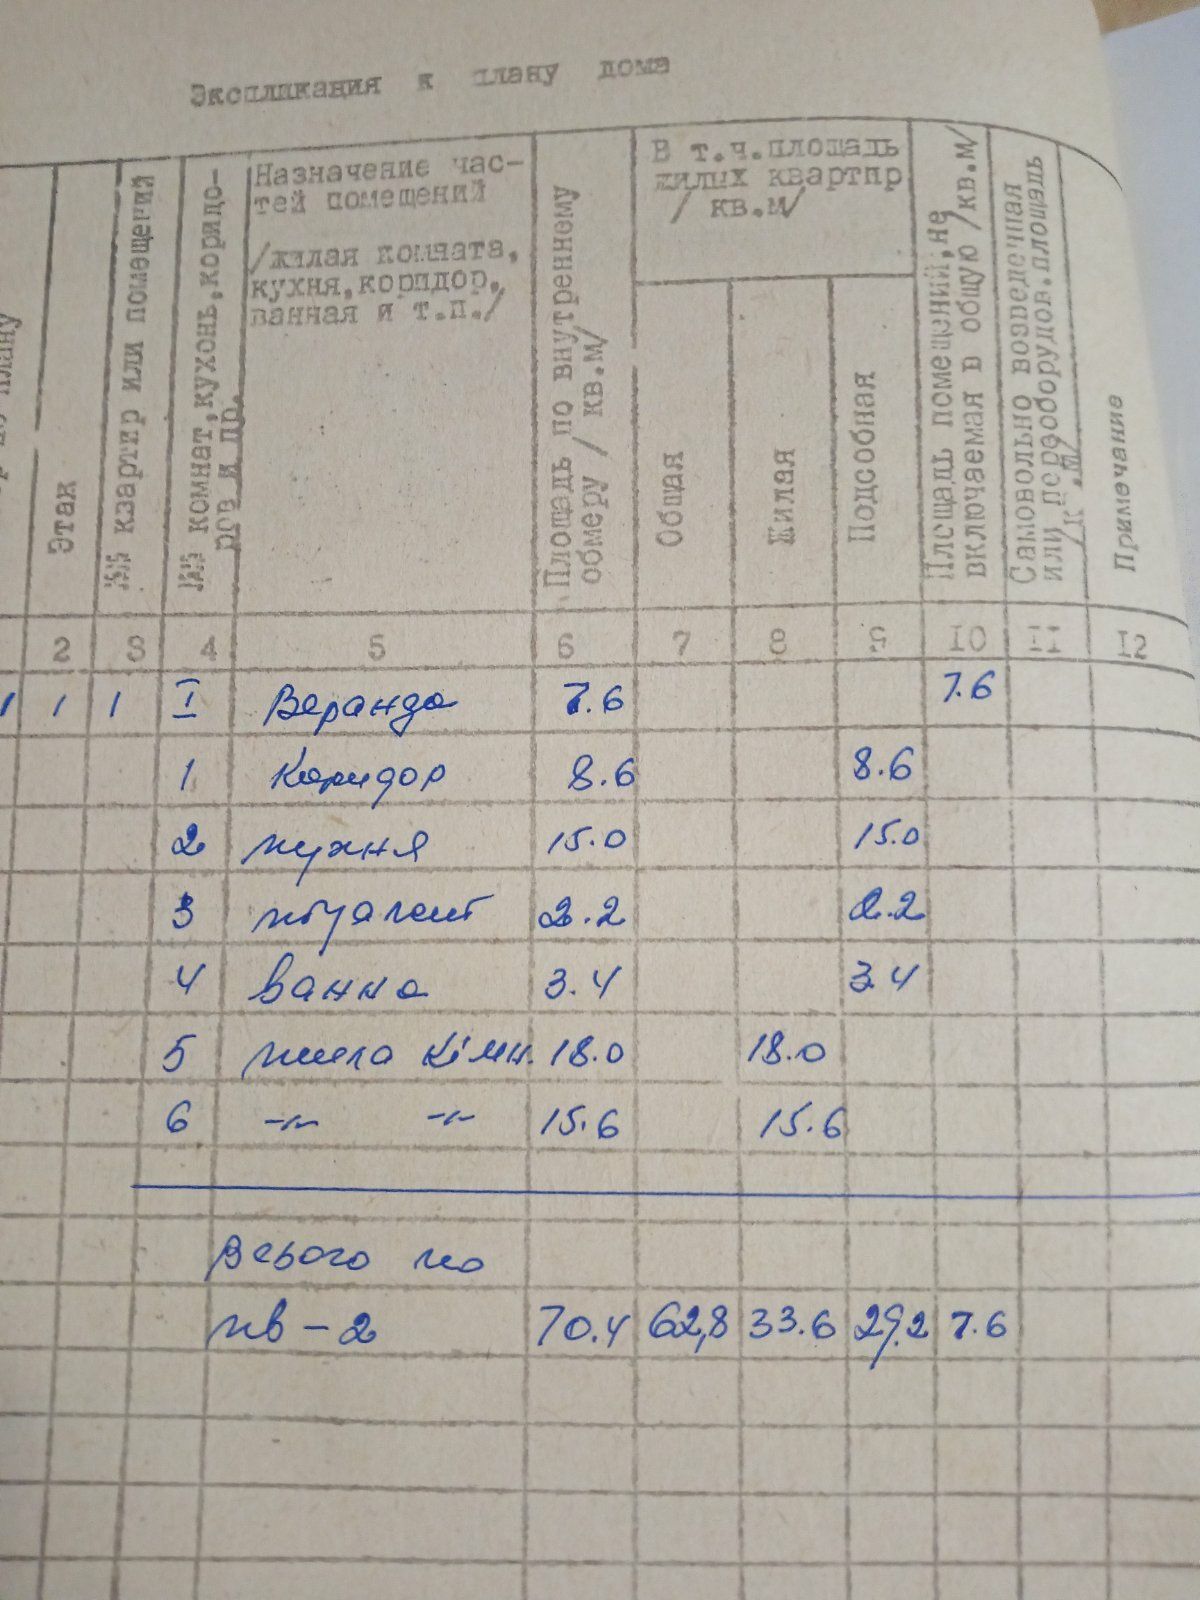 Экспликация к плану дома
по плану
Этаж
№№ квартир или помещений
№№ комнат, кухонь, коридо-
ров и пр.
Назначение час-
тей помещений
/жилая комната,
кухня, коридор,
ванная и т.п./
Площадь по внутреннему
обмеру / кв.м/
В т.ч.площадь
жилых квартир
/ кв.м/
Общая
Жилая
Подсобная
Площадь помещений, не
включаемая в общую /кв.м/
Самовольно возведенная
или переоборудов.площадь
/к .м/
Примечание
2 3 4 5 6 7 8 9 10 11 12
1 1 1 I Веранда 7.6 7.6
1 Коридор 8.6 8.6
2 кухня 15.0 15.0
3 туалет 2.2 2.2
4 ванна 3.4 3.4
5 жила кімн. 18.0 18.0
6 -"- -"- 15.6 15.6
Всього по
кв - 2 70.4 62,8 33.6 29.2 7.6